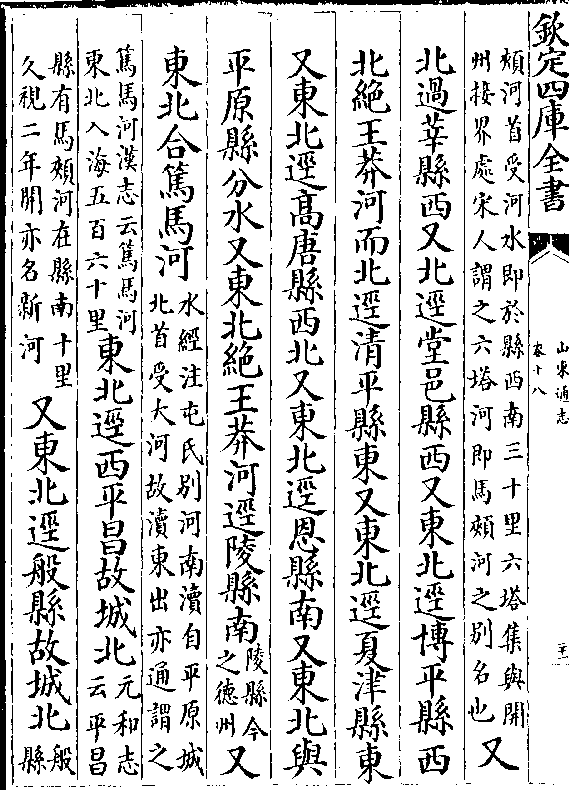 欽定四庫全書
山東通志
卷十八
頰河首受河水即於縣西南三十里六塔集與開
州接界處宋人謂之六塔河即馬頰河之別名也
又
北過莘縣西又北逕堂邑縣西又東北逕博平縣西
北絶王莽河而北逕清平縣東又東北逕夏津縣東
又東北逕高唐縣西北又東北逕恩縣南又東北與
平原縣分水又東北絶王莽河逕陵縣南
陵縣今
之德州
又
東北合篤馬河
水經注屯氏別河南瀆自平原城
北首受大河故瀆東出亦通謂之
篤馬河漢志云篤馬河
東北入海五百六十里
東北逕西平昌故城北
元和志
云平昌
縣有馬頰河在縣南十里
久視二年開亦名新河
又東北逕般縣故城北
般
縣